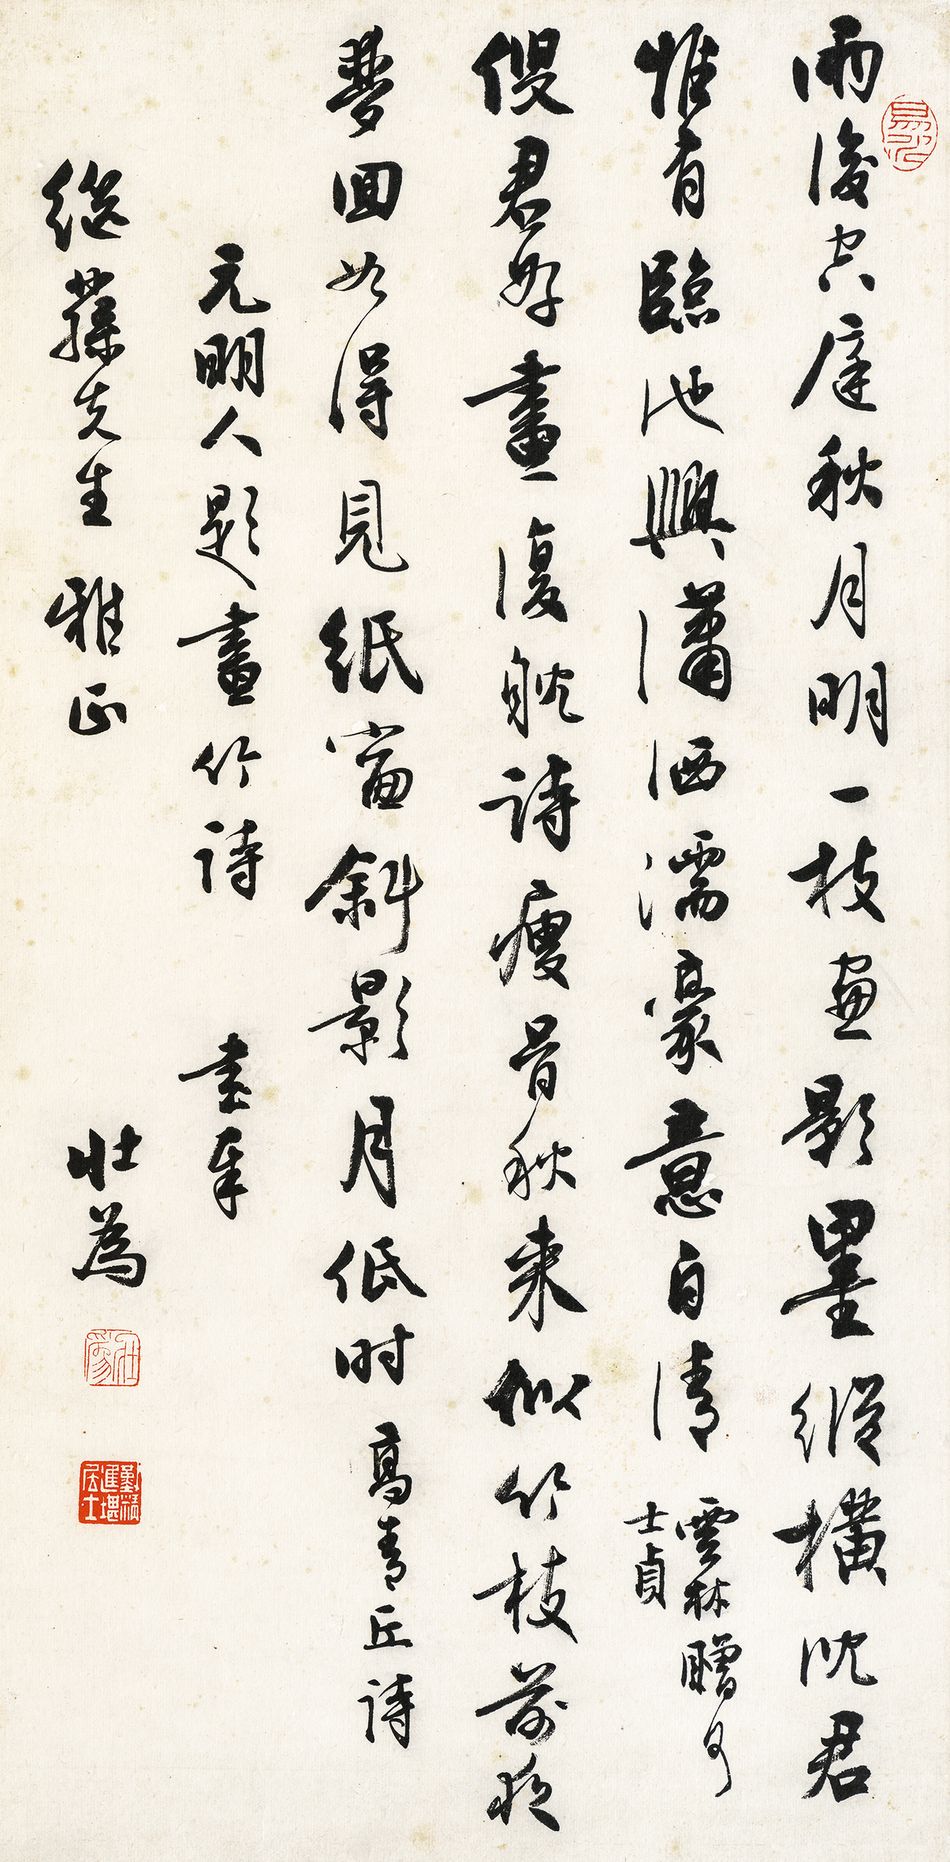 雨後空庭秋月明一枝窗影墨縱橫沈君
惟有臨池興瀟洒濡豪意自清 雲林贈何
士貞
傁君好畫復躭詩瘦骨秋來似竹枝前夜
夢回如得見紙窗斜影月低时 高青丘詩
元明人題畫竹詩 書奉
繼蓀先生 雅正 壯為